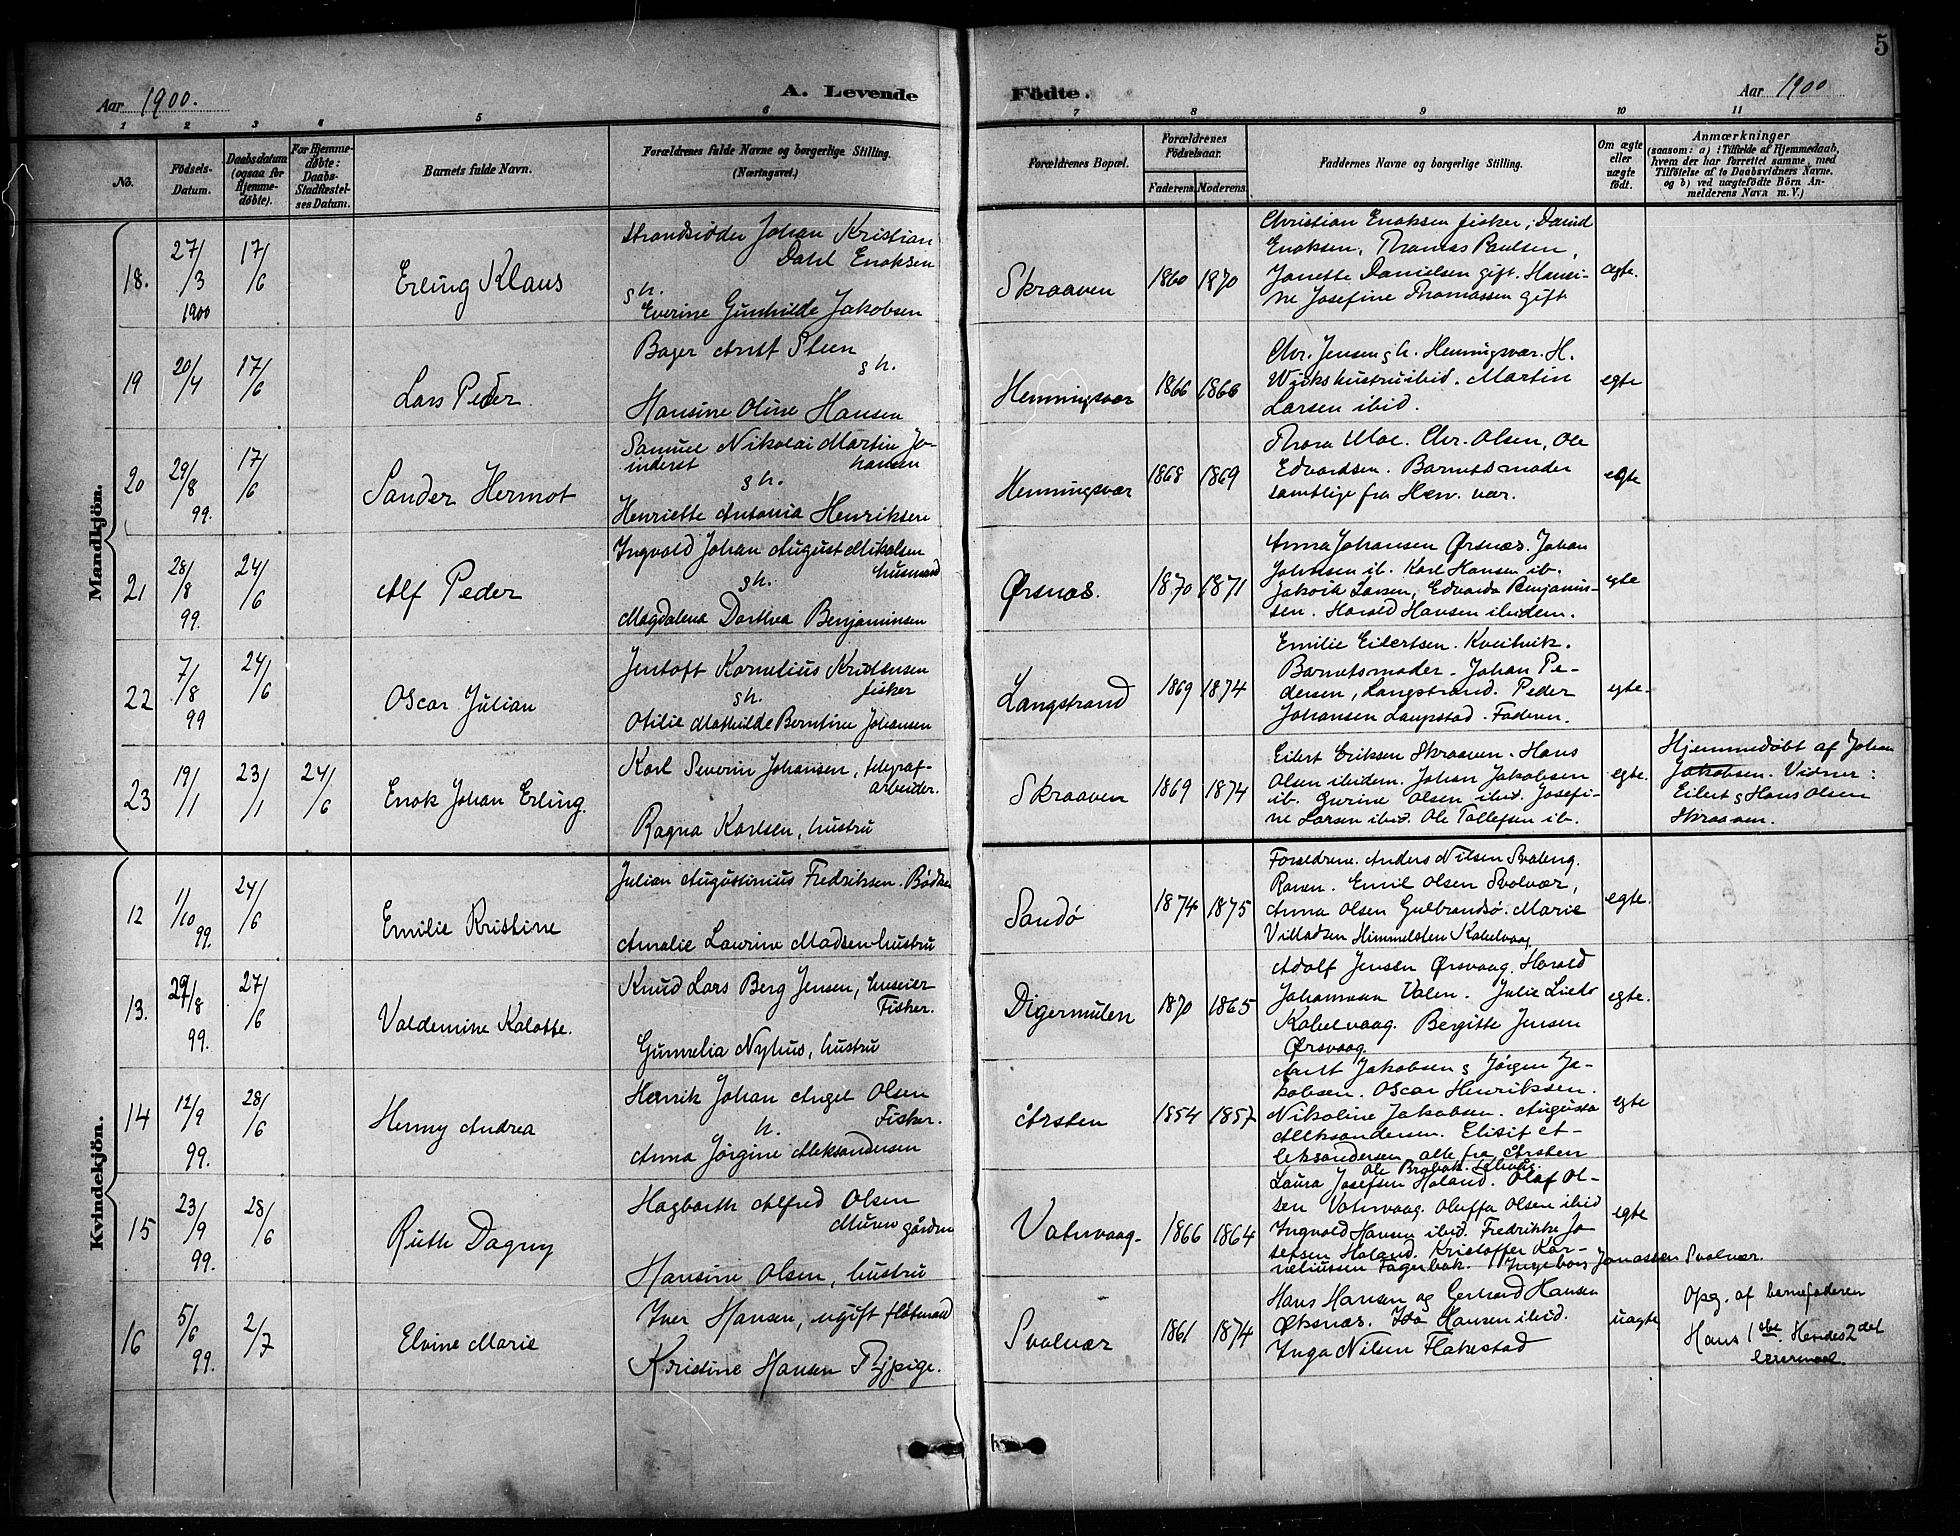 5
Aar 1900.
A. Levende Födte.
Aar 1900
1 2 3 4 5 6 7 8 9 10 11
No.
Födsels-
Datum.
Daabsdatum
(ogsaa for
Hjemme-
döbte).
For Hjemme-
döbte:
Daabs-
Stadfæstel-
ses Datum.
Barnets fulde Navn.
Forældrenes fulde Navne og borgerlige Stilling.
(Næringsvei.)
Forældrenes Bopæl.
Forældrenes
Födselsaar.
Faderens. Moderens.
Faddernes Navne og borgerlige Stilling.
Om ægte
eller
uægte
født.
Anmærkninger
(saasom: a) i Tilfælde af Hjemmedaab,
hvem der har forrettet samme, med
Tilføielse af to Daabsvidners Navne.
og b) ved uægtefödte Börn An-
melderens Navn m. V.)
Mandkjön.
18.
27/3
1900
17/6
Erling Klaus
Strandsidder Johan Kristian
Dahl Enoksen
g h.
Everine Gunhilde Jakobsen
Skraaven
1860 1870
Christian Enoksen fisker, David
Enoksen, Thomas Paulsen,
Janette Danielsen gift. Hansi-
ne Josefine Thomassen gift
ægte.
19
20/4
17/6
Lars Peder
Bager Arnt Steen
g h.
Hansine Oline Hansen
Henningsvær
1866 1866
Chr. Jensen g h. Henningsvær. H.
Wiks hustru ibid. Martin
Larsen ibid.
egte
20
29/8
99.
17/6
Sander Hermot
Samuel Nikolai Martin Jo-
inderst hansen
g h.
Henriette Antonia Henriksen
Henningsvær
1868 1869
Thora Moe. Chr. Olsen, Ole
Edvardsen. Barnetsmoder
samtlige fra Hen. vær.
egte
21
28/8
99.
24/6
Alf Peder
Ingvald Johan August Mikalsen
husmand
g h.
Magdalena Dorthea Benjaminsen
Ørsnes.
1870 1871
Anna Johansen Ørsnæs. Johan
Johansen ib. Karl Hansen ib.
Jakob Larsen, Edvarda Benjamin-
sen. Harald Hansen ibidem.
egte
22
7/8
99
24/6
Oscar Julian
Jentoft Kornelius Kristensen
fisker
g h.
Otilie Mathilde Berntine Johansen
Langstrand
1869 1874
Emilie Eilertsen. Kveitvik.
Barnetsmoder. Johan Pe-
dersen, Langstrand. Peder
Johansen Laupstad. Faderen.
egte.
23
19/1
23/1
24/6
Enok Johan Erling.
Karl Severin Johansen, telegraf-
arbeider.
Ragna Karlsen, hustru
Skraaven
1869 1874
Eilert Eriksen Skraaven. Hans
Olsen ibidem. Johan Jakobsen
ib. Gurine Olsen ibid. Josefi-
ne Larsen ibid. Ole Tollefsen ib.
egte.
Hjemmedøbt af Johan
Jakobsen. Vidner:
Eilert g Hans Olsen
Skraaven.
Kvindekjön.
12
1/10
99.
24/6
Emilie Kristine
Julian Augustinius Fredriksen. Bødker
Amalie Laurine Madsen hustru
Sandø
1874 1875
Forældrene. Anders Nilsen Svoleng.
Raven. Emil Olsen Svolvær,
Anna Olsen Gulbrandsø. Marie
Villadsen Himmelsten Kabelvaag
egte.
13.
29/8
99.
27/6
Valdemine Kalotte.
Knud Lars Berg Jensen, huseier
Fisker.
Gunnelia Nyhus, hustru
Digermulen
1870 1865
Adolf Jensen Ørsvaag. Harald
Johannsen Valen. Julie Lietø
Kabelvaag. Bergitte Jensen
Ørsvaag.
egte.
14
12/9
99.
28/6
Henny Andrea
Henrik Johan Angel Olsen
Fisker.
h.
Anna Jørgine Aleksandersen
Årsten
1854 1857
Arnt Jakobsen g Jørgen Ja-
kobsen. Oscar Henriksen.
Nikoline Jakobsen. Augusta
Aleksandersen. Elisit A-
leksandersen alle fra Årsten
egte
15
23/9
99.
28/6
Ruth Dagny
Hagbarth Alfred Olsen
Muren gården
Hansine Olsen, hustru
Vatervaag.
1866 1864
Laura Josefsen Holand. Olaf Ol-
sen Vatervaag. Oluffa Olsen ibid
Ingvald Hansen ibid. Fredrikke Jo
sefsen Holand. Kristoffer Kor-
neliussen Fagerbak. Ingeborg Jonassen Svolvær.
egte
16
5/6
99.
2/7
Elvine Marie
Iver Hansen, ugift fløtmand
Kristine Hansen Tjpige.
Svolvær
1861 1874
Hans Hansen og Gerhard Hansen
Øksnæs. Ida Hansen ibid.
Inga Nilsen Flakestad
uægte
Opg. af barnefaderen
Hans 1ste. Hendes 2det
leiermaal.